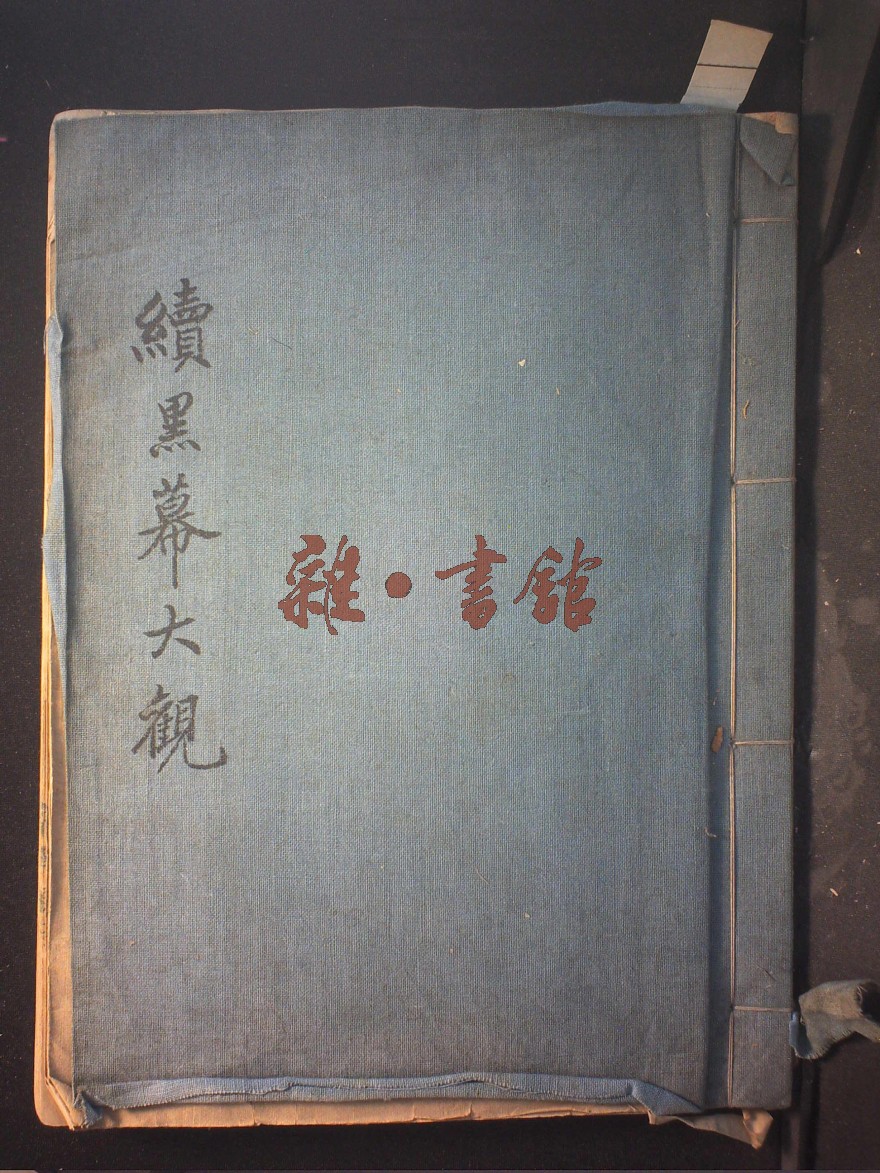 續黑幕大觀
雜·書館